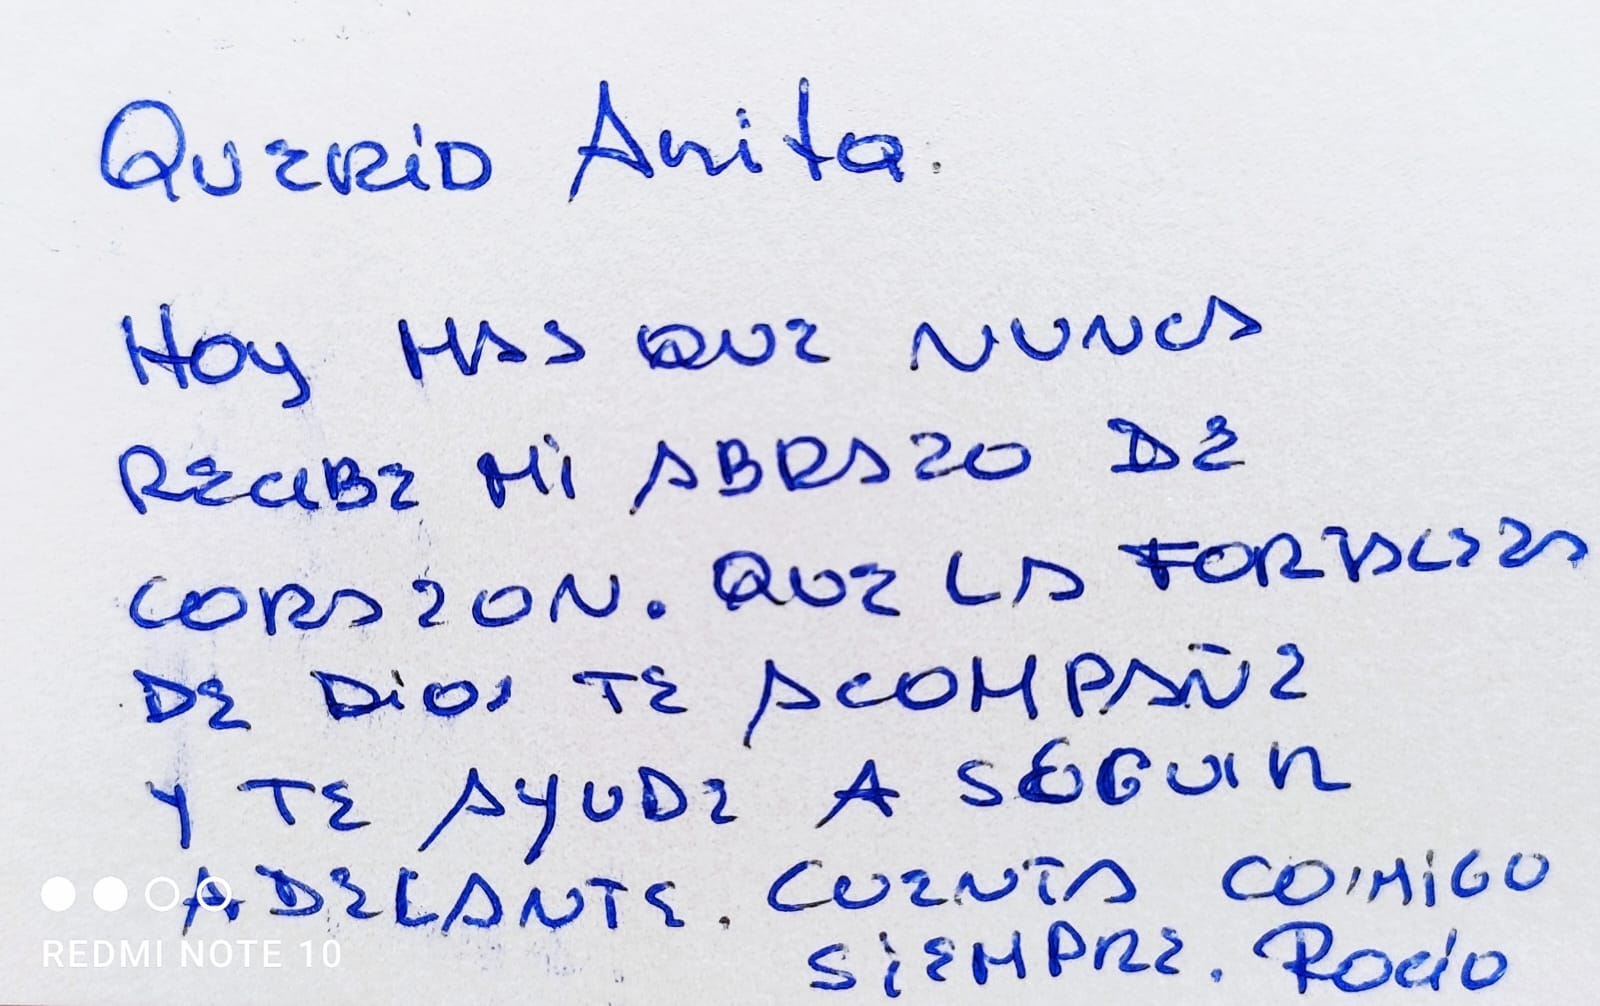 Querid Anita.
HOY MAS QUE NUNCA
RECIBE MI ABRAZO DE
CORAZON. QUE LA FORTALEZA
DE DIOS TE ACOMPAÑE
Y TE AYUDE A SEGUIR
ADELANTE. CUENTA COMIGO
SIEMPRE. Rocio
REDMI NOTE 10